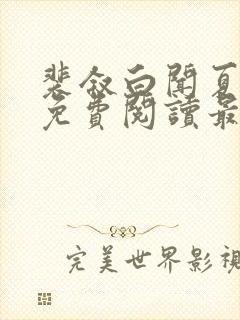 裴叙白闻夏
免費閱讀最
完美世界影視